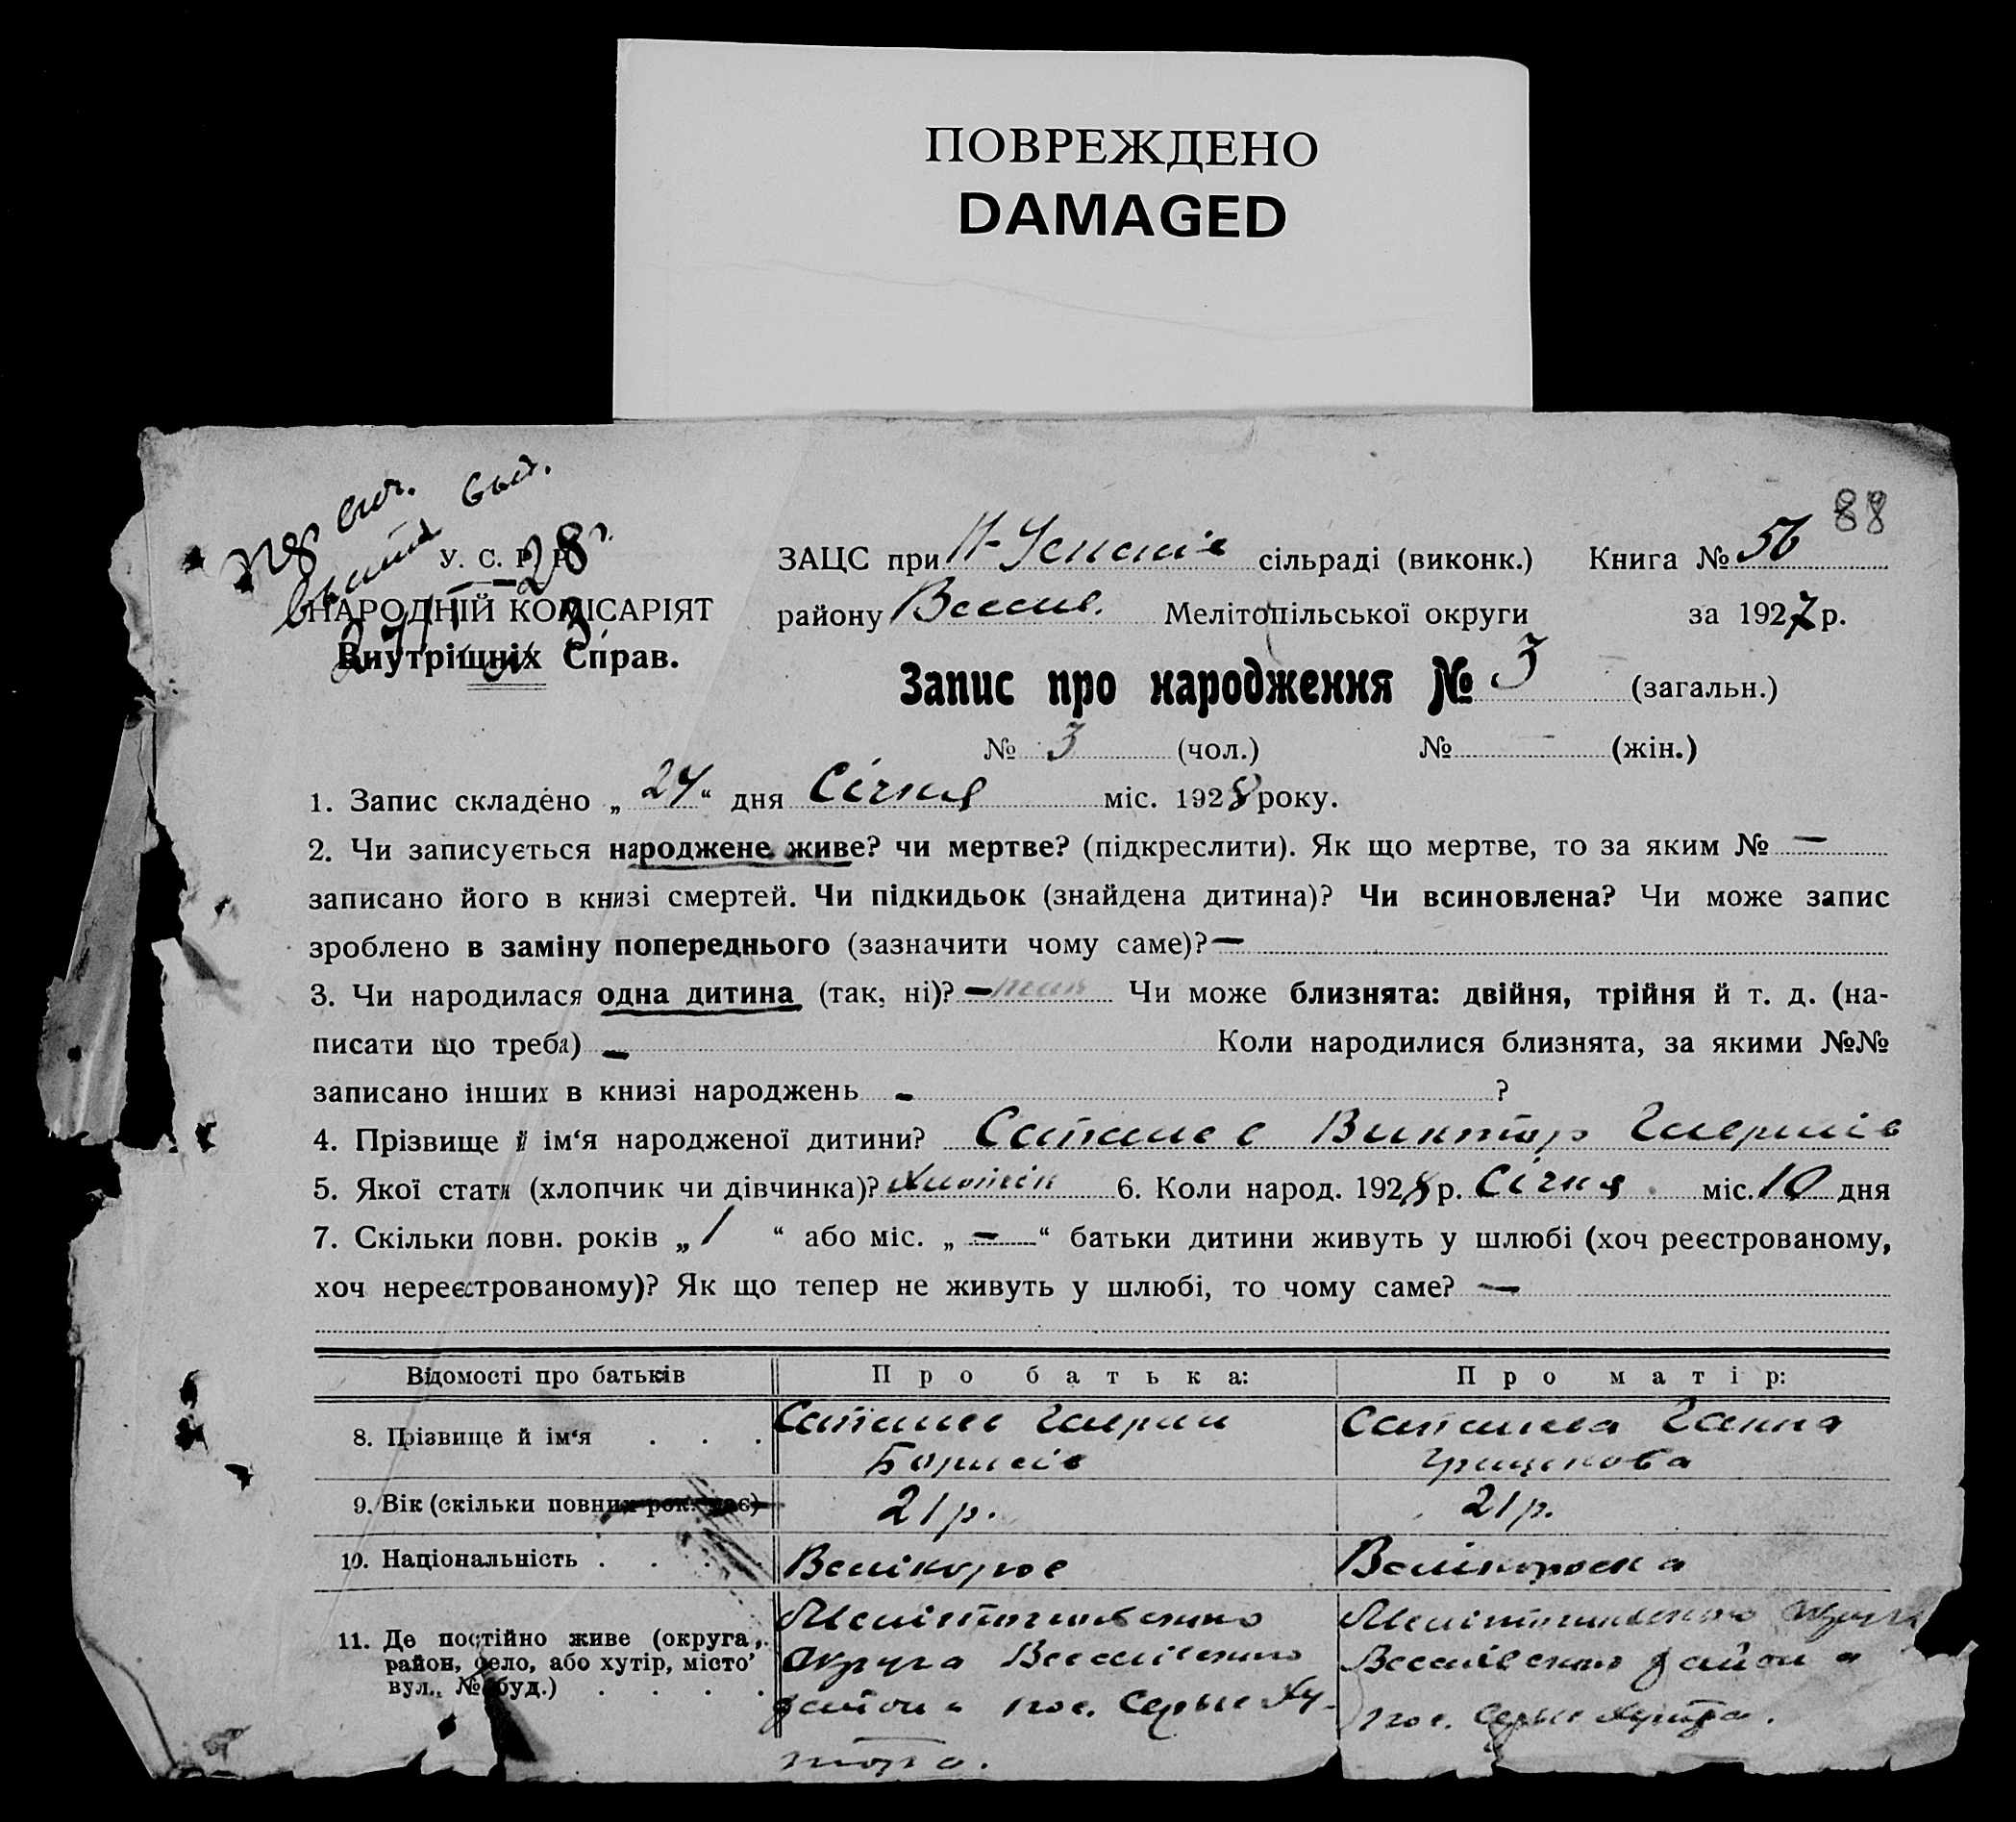 ПОВРЕЖДЕНО
DAMAGED
88
У. С. Р. Р.
НАРОДНІЙ КОМІСАРІЯТ
Внутрішніх Справ.
ЗАЦС при сільраді (виконк.) Книга № 56
району Весел. Мелітопільської округи за 1927 р.
Запис про народження № 3 (загальн.)
№ 3 (чол.) № — (жін.)
1. Запис складено „24“ дня Січня міс. 1928 року.
2. Чи записується народжене живе? чи мертве? (підкреслити). Як що мертве, то за яким № —
записано його в книзі смертей. Чи підкидьок (знайдена дитина)? Чи всиновлена? Чи може запис
зроблено в заміну попереднього (зазначити чому саме)? —
3. Чи народилася одна дитина (так, ні)? — так Чи може близнята: двійня, трійня й т. д. (на-
писати що треба) — Коли народилися близнята, за якими №№
записано інших в книзі народжень - ?
4. Прізвище й ім‘я народженої дитини? Виктор
5. Якої стати (хлопчик чи дівчинка)? 6. Коли народ. 1928 р. Січня міс. 10 дня
7. Скільки повн. років „ 1 “ або міс. „ — “ батьки дитини живуть у шлюбі (хоч реєстрованому,
хоч нереєстрованому)? Як що тепер не живуть у шлюбі, то чому саме? —
Відомості про батьків Про батька: Про матір:
8. Прізвище й ім‘я . . . Ганна
Борисів Грищенова
9. Вік (скільки повних рок. має) 21 р. 21 р.
10. Національність . . . . Велікорос Велікороска
11. Де постійно живе (округа, район, село, або хутір, місто, вул., № буд.) . . . .
Мелітопільсько Округа Веселівсько района пос. Серые Ху-
тора.
Мелітопільсько Округа
Веселівсько района
пос. Серые Хутора.